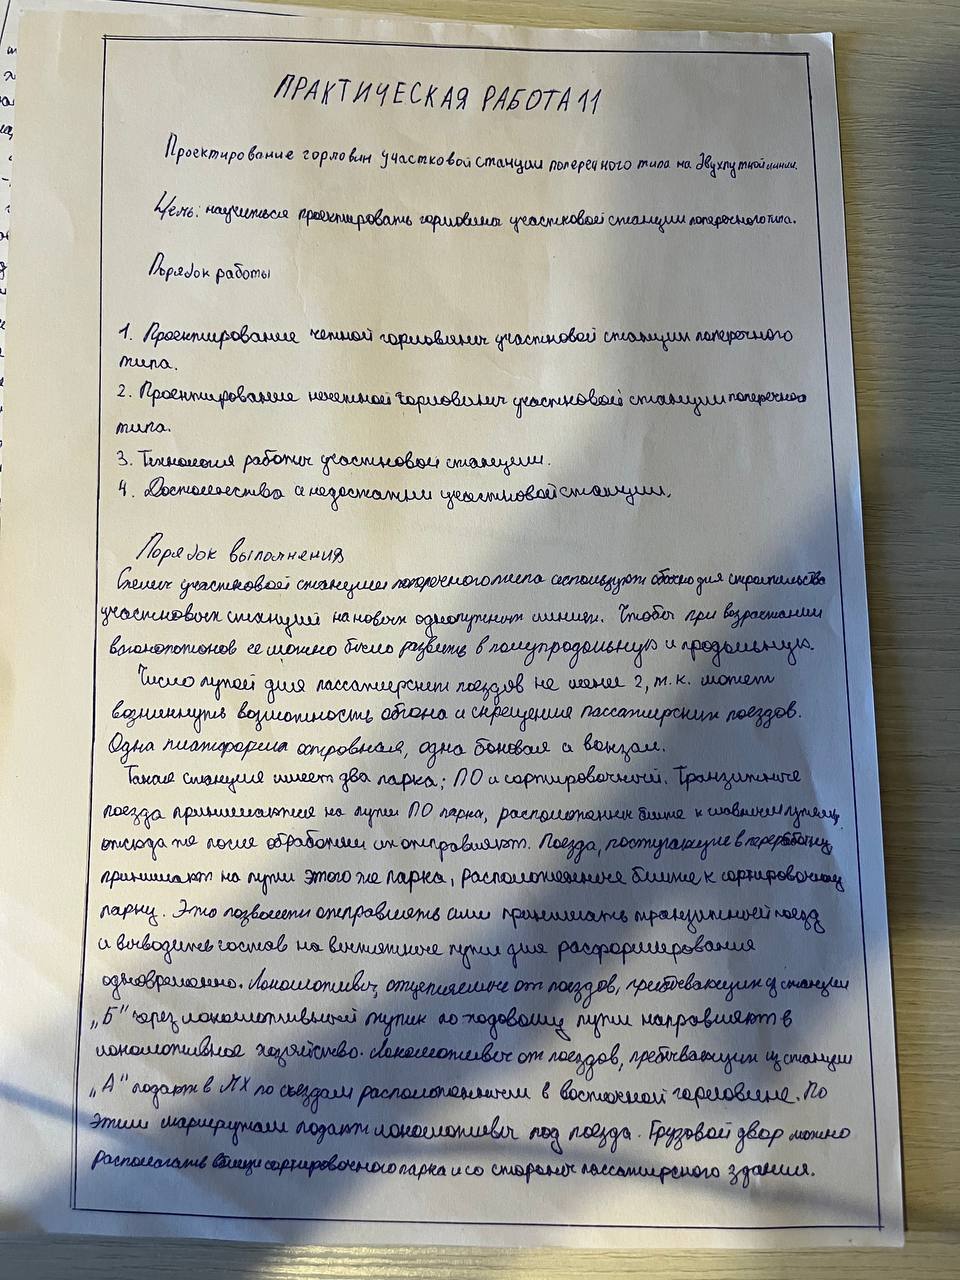 ПРАКТИЧЕСКАЯ РАБОТА 11
Проектирование горловин участковой станции поперечного типа на двухпутной линии.
Цель: научиться проектировать горловины участковой станции поперечного типа.
Порядок работы
1. Проектирование четной горловины участковой станции поперечного
типа.
2. Проектирование нечетной горловины участковой станции поперечного
типа.
3. Технология работы участковой станции.
4. Достоинства и недостатки участковой станции.
Порядок выполнения
Схемы участковой станции поперечного типа используют обычно для строительства
участковых станций на новых однопутных линиях. Чтобы при возрастании
вагонопотоков ее можно было развить в полупродольную и продольную.
Число путей для пассажирских поездов не менее 2, т.к. может
возникнуть возможность обгона и скрещения пассажирских поездов.
Одна платформа островная, одна боковая и вокзал.
Такая станция имеет два парка; ПО и сортировочный. Транзитные
поезда принимаются на пути ПО парка, расположенных ближе к главным путям,
откуда же после обработки их отправляют. Поезда, поступающие в переработку
принимают на пути этого же парка, расположенные ближе к сортировочному
парку. Это позволяет отправлять или принимать транзитный поезд
и выводить состав на вытяжные пути для расформирования
одновременно. Локомотивы, отцепляемые от поездов, прибывающих из станции
„Б" через локомотивный тупик по ходовому пути направляют в
локомотивное хозяйство. Локомотивы от поездов, прибывающих из станции
„А" подают в ЛХ по съездам расположенным в восточной горловине. По
этим маршрутам подают локомотивы под поезда. Грузовой двор можно
располагать вблизи сортировочного парка и со стороны пассажирского здания.